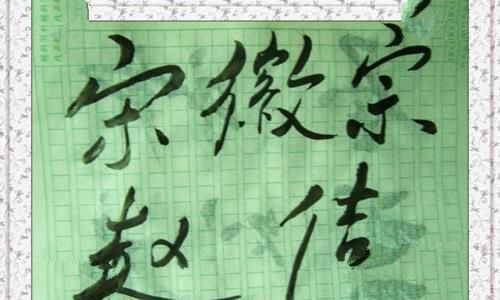 宋徽宗
赵佶